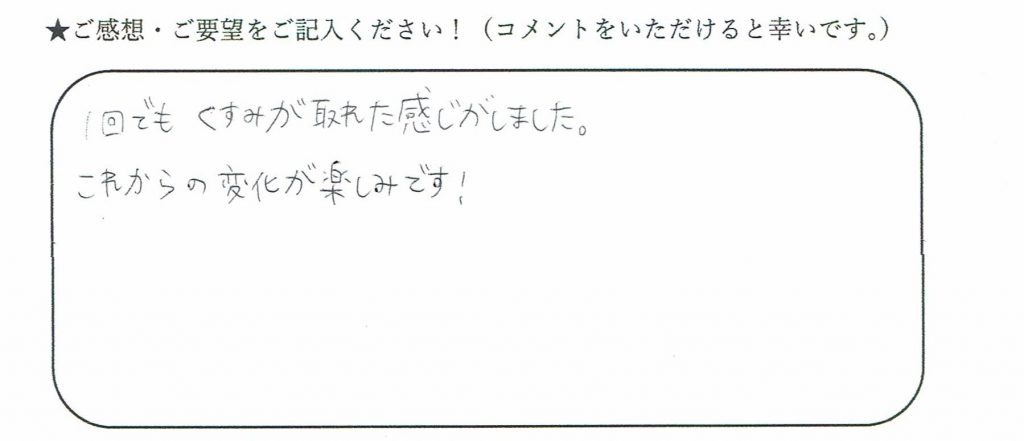 ★ご感想・ご要望をご記入ください！（コメントをいただけると幸いです。）
1回でも くすみが取れた感じがしました。
これからの変化が楽しみです！